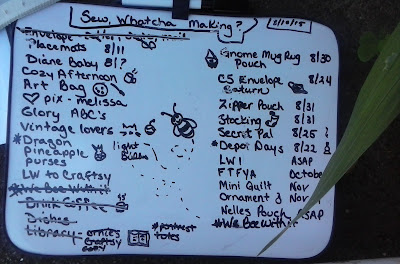 Sew, Whatcha Making?
8/10/15
Envelope
Placemats 8/11
Diane Baby 8/?
Cozy Afternoon
Art Bag
pix - melissa
Glory ABC's
Vintage lovers
*Dragon
pineapple
purses
light
LW to Craftsy
*We Bee With it
Drink Coffee
Dishes
Library
Craftsy
*portrait
totes
Gnome Mug Rug 8/30
Pouch
CS Envelope 8/24
Saturn
Zipper Pouch 8/31
Stocking 8/31
Secret Pal 8/25
*Depot Days 8/22
LW1 ASAP
FTFYA October
Mini Quilt Nov
Ornament Nov
Nelles Pouch ASAP
*We Bee With it